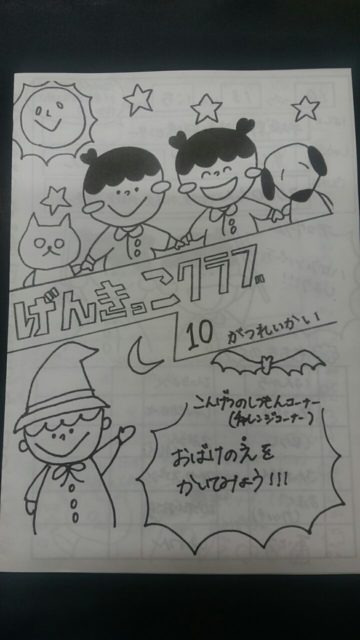 げんきっこクラブ
10 がつれいかい
こんげつのしつもんコーナー
(チャレンジコーナー)
おばけのえを
かいてみよう!!!